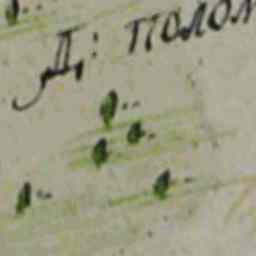 Д: полом